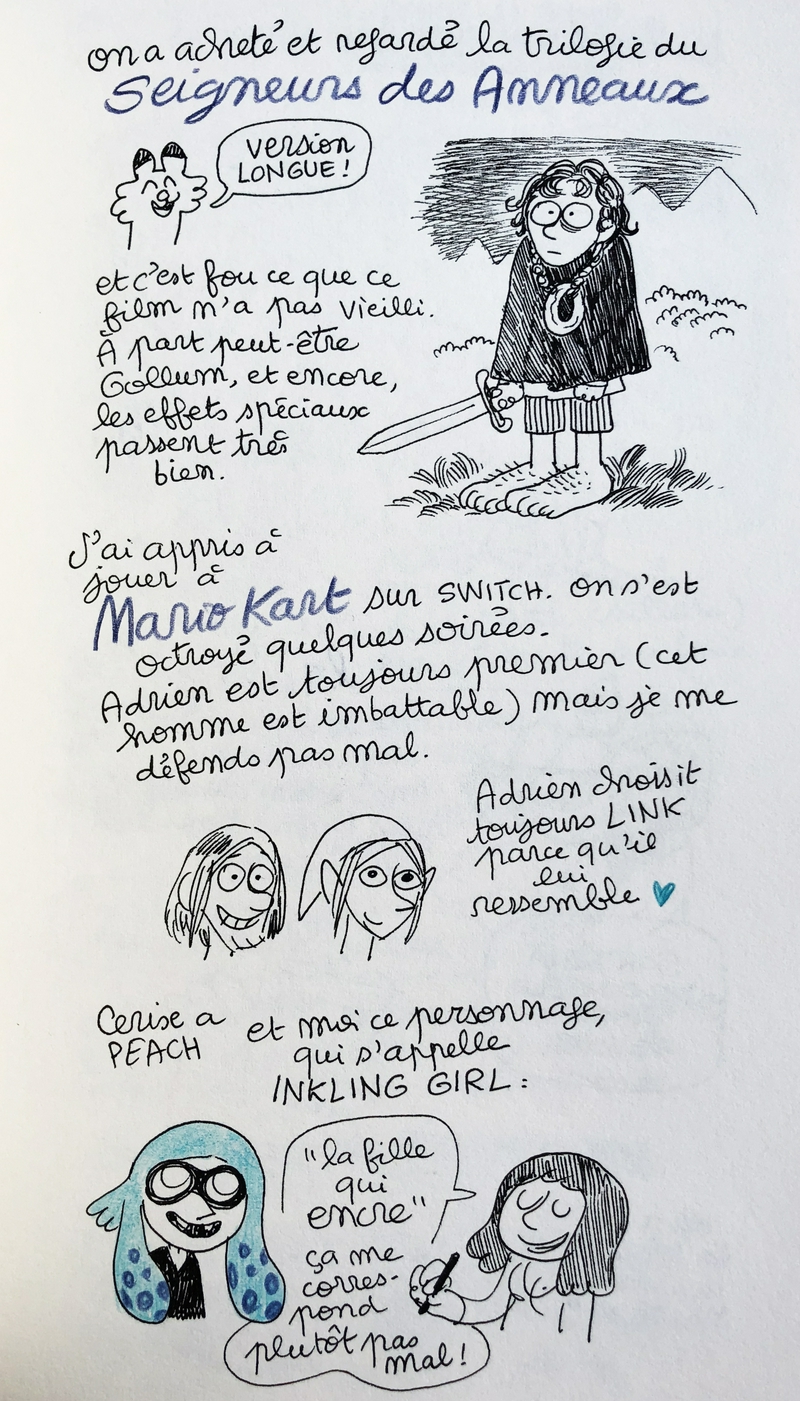 on a acheté et regardé la trilogie du
Seigneurs des Anneaux
version
LONGUE !
et c'est fou ce que ce
film n'a pas vieilli.
À part peut-être
Gollum, et encore,
les effets spéciaux
passent très
bien.
J'ai appris à
jouer à
Mario Kart sur SWITCH. on s'est
octroyé quelques soirées.
Adrien est toujours premier (cet
homme est imbattable) mais je me
défends pas mal.
Adrien choisit
toujours LINK
parce qu'il
lui
ressemble
Cerise a
PEACH
et moi ce personnage,
qui s'appelle
INKLING GIRL :
"la fille
qui
encre"
ça me
corres-
pond
plutôt pas
mal !